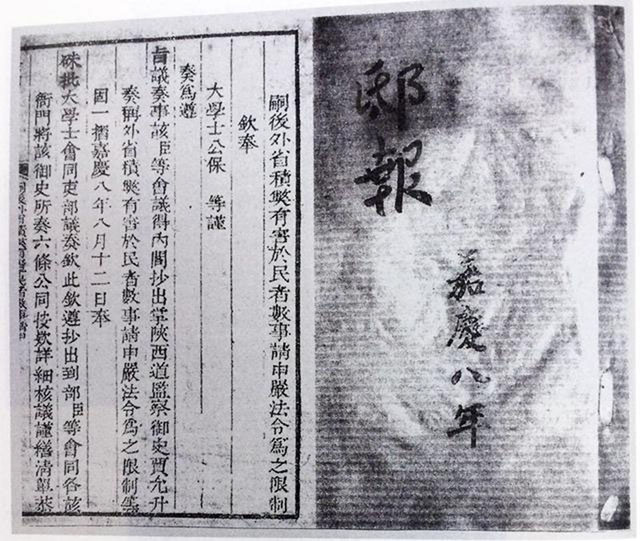 邸報
嘉慶八年
嗣後外省積獘有害於民者數事請申嚴法令爲之限制
欽奉
大學士公保　等謹
奏爲遵
旨議奏事該臣等會議得內閣抄出掌陝西道監察御史賈允升
奏稱外省積獘有害於民者數事請申嚴法令爲之限制等
因一摺嘉慶八年八月十二日奉
硃批大學士會同吏部議奏欽此欽遵抄出到部臣等會同各該
衙門將該御史所奏六條公同按欵詳細核議謹繕清單恭